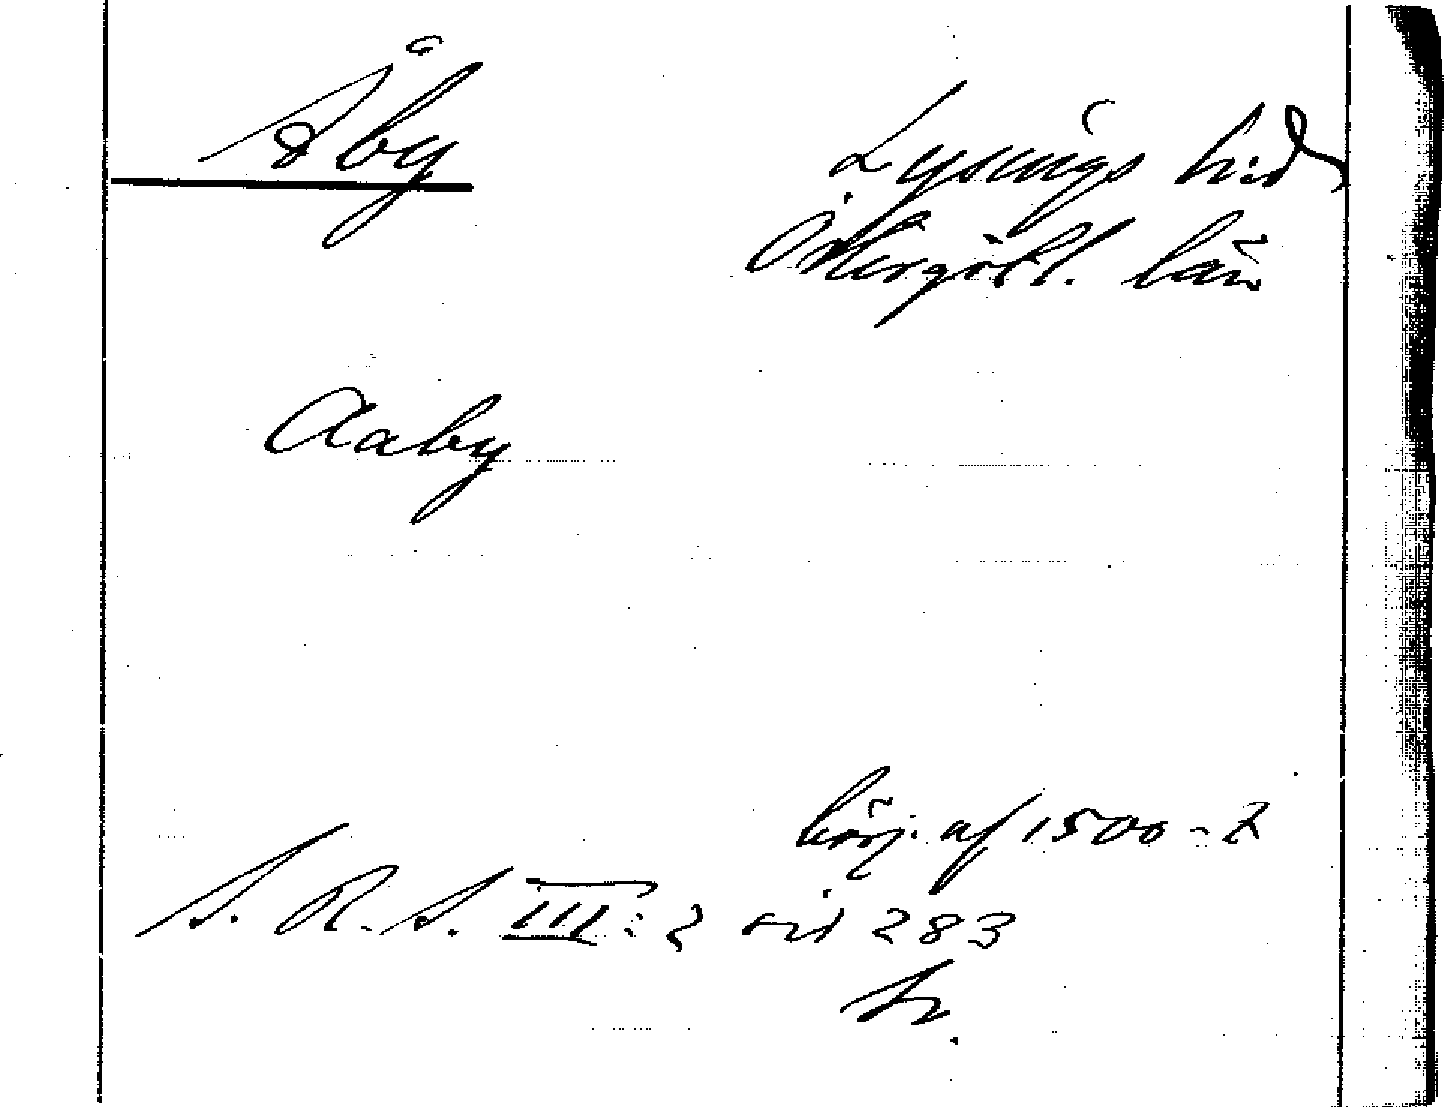 Åby
Lysings hd
Östergötl. län
Aaby
börj. af 1500-t
S. R. S. III: 2 sid 283